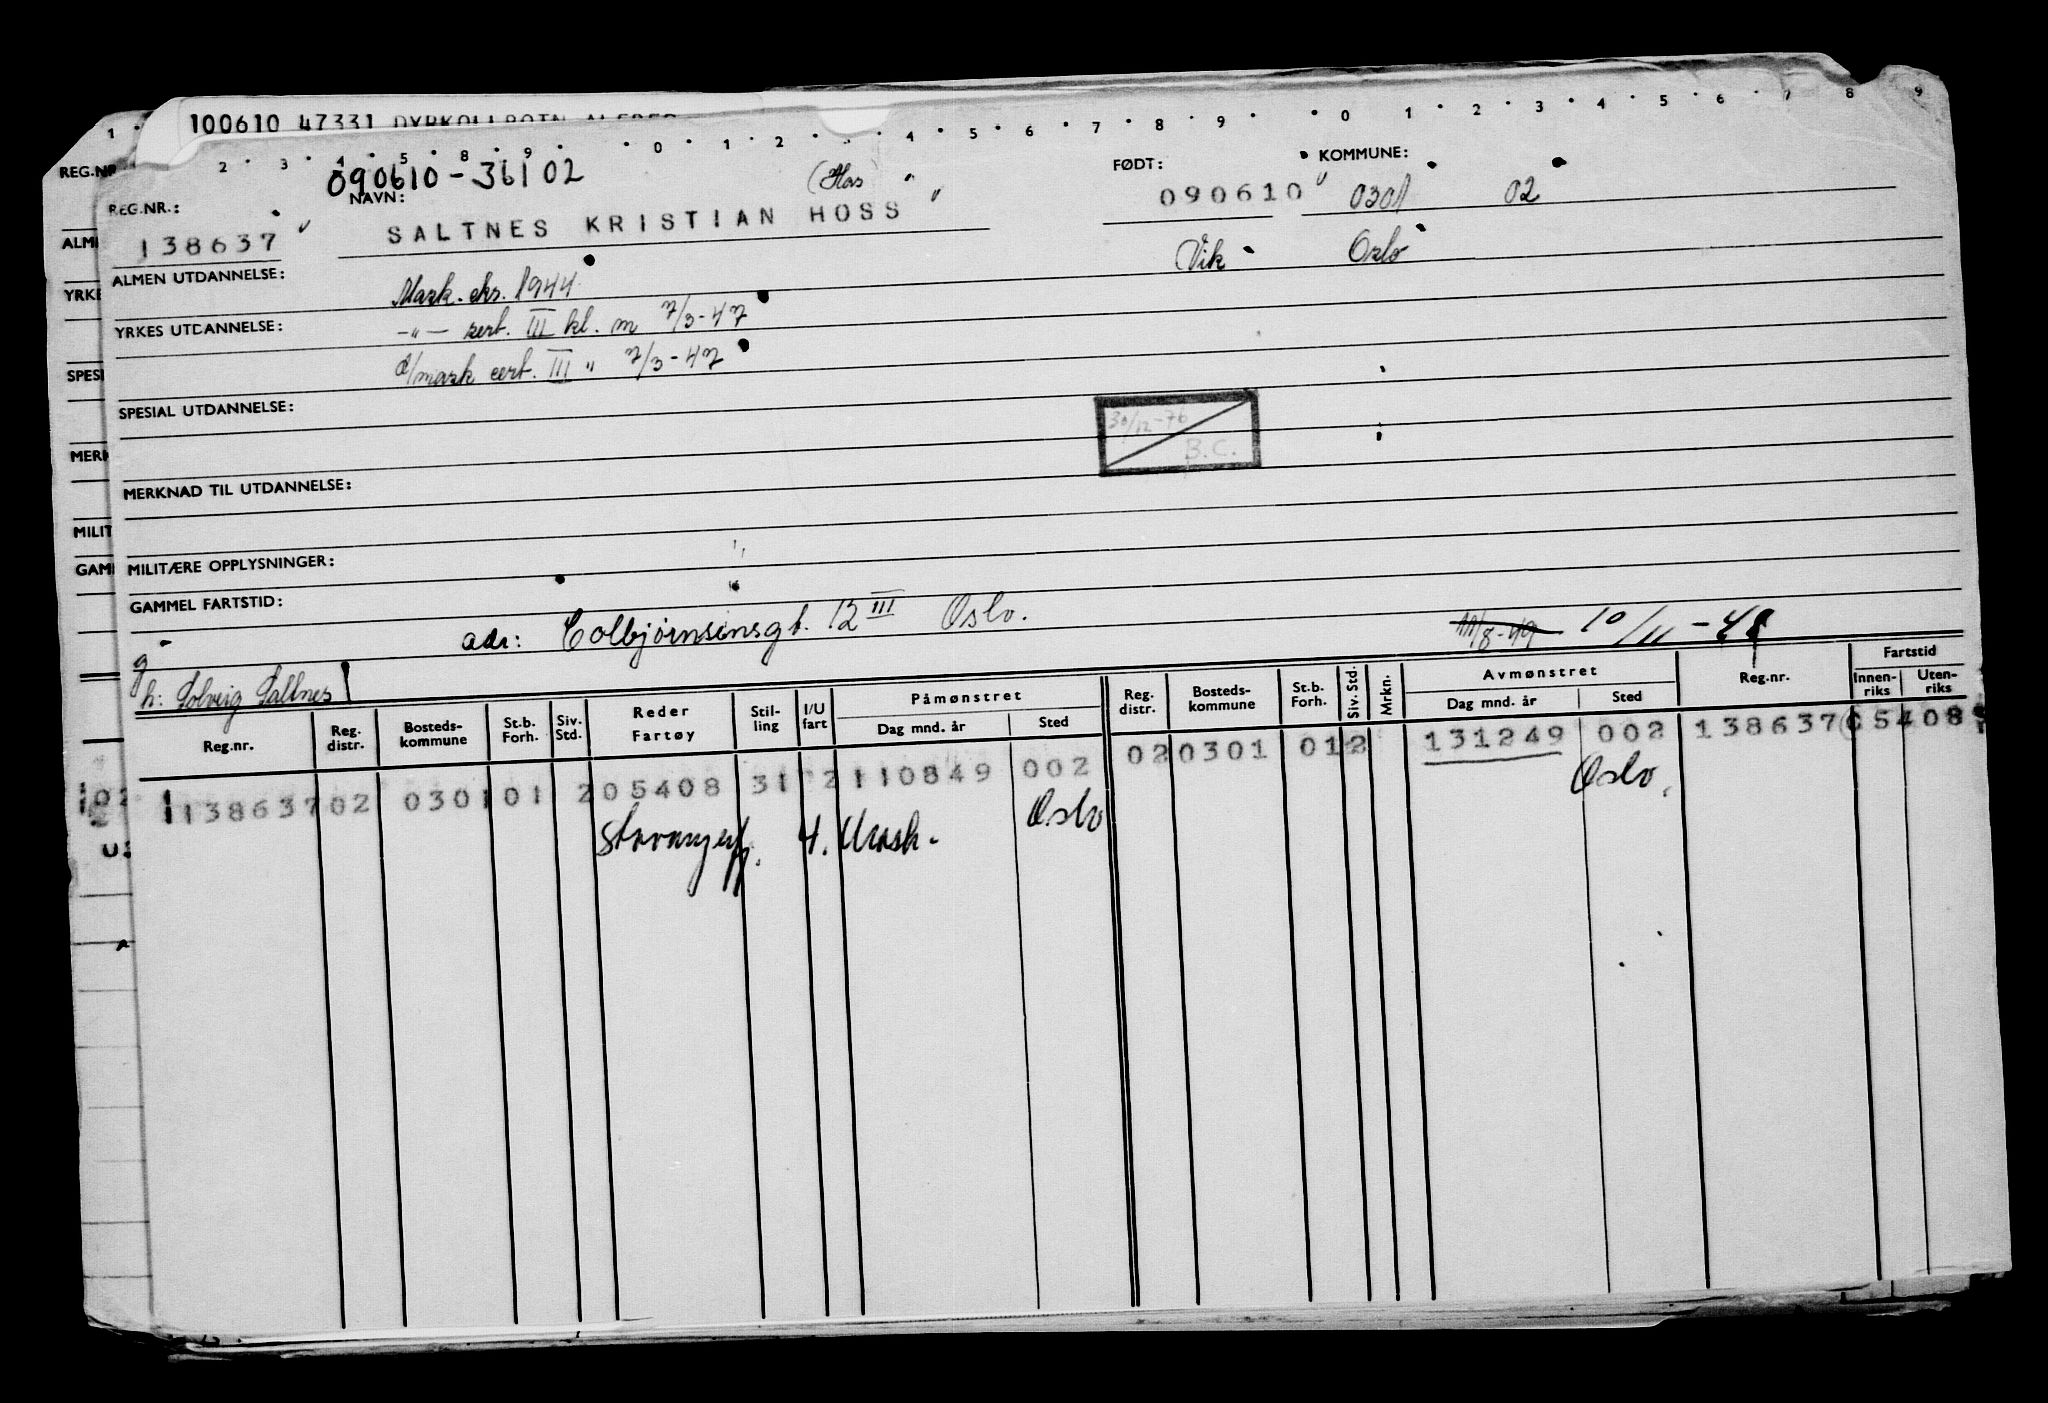 100610 47331 DYRKOLLBOTN ALFRED
1
2 · 3 · 4 · 5 · 8 · 9 · · 0 · 1 · 2 · 3 · 4 · 5 · 6 · 7 · 8 · 9 · · 0 · 1 · 2 · 3 · 4 · 5 · 6 · 7 8 9
090610 - 36102
REG.NR
REG.NR.: NAVN: (Hos FØDT: KOMMUNE:
138637 SALTNES KRISTIAN HOSS 090610 0301 02
Vik Oslo
ALM
ALMEN UTDANNELSE: Mask. eks. 1944
YRKE
YRKES UTDANNELSE: -"- sert. III kl. m 7/3-47
d/mask cert. III " 7/3-47
SPESI
SPESIAL UTDANNELSE:
30/12-76 B.C.
MERK
MERKNAD TIL UTDANNELSE:
MILIT
MILITÆRE OPPLYSNINGER:
GAM
GAMMEL FARTSTID:
adr: Colbjørnsensgt. 12 III Oslo. 11/8-49 10/11-48
g
h: Solveig Saltnes
Reg.nr. Reg. distr. Bosteds- kommune St.b. Forh. Siv. Std. Reder Fartøy Stil- ling I/U fart Påmønstret Dag mnd. år Sted Reg. distr. Bosteds- kommune St.b. Forh. Siv. Std. Mrkn. Avmønstret Dag mnd. år Sted Reg.nr. Fartstid Innen- riks Uten- riks
138637 02 0301 01 2 05408 31 2 110849 002 02 0301 01 2 131249 002 138637 C5408
Stavangerfj. 4. Mask. Oslo Oslo.